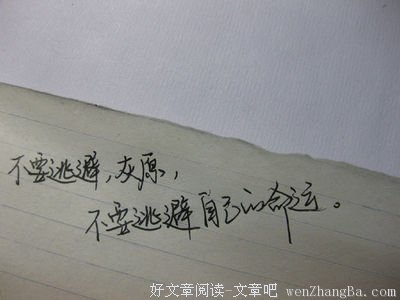 不要逃避,灰原,
不要逃避自己的命运。
好文章阅读-文章吧 wenZhangBa.com